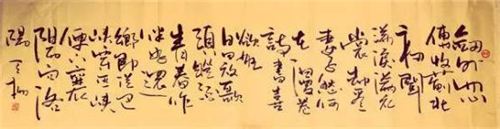 劍外忽
傳收薊北
初聞
涕淚滿衣
裳却看
妻子愁何
在漫卷
詩書喜
欲狂
白日放歌
須縱酒
青春作
伴好還
鄉即從巴
峽穿巫峽
便下襄
陽向洛
陽